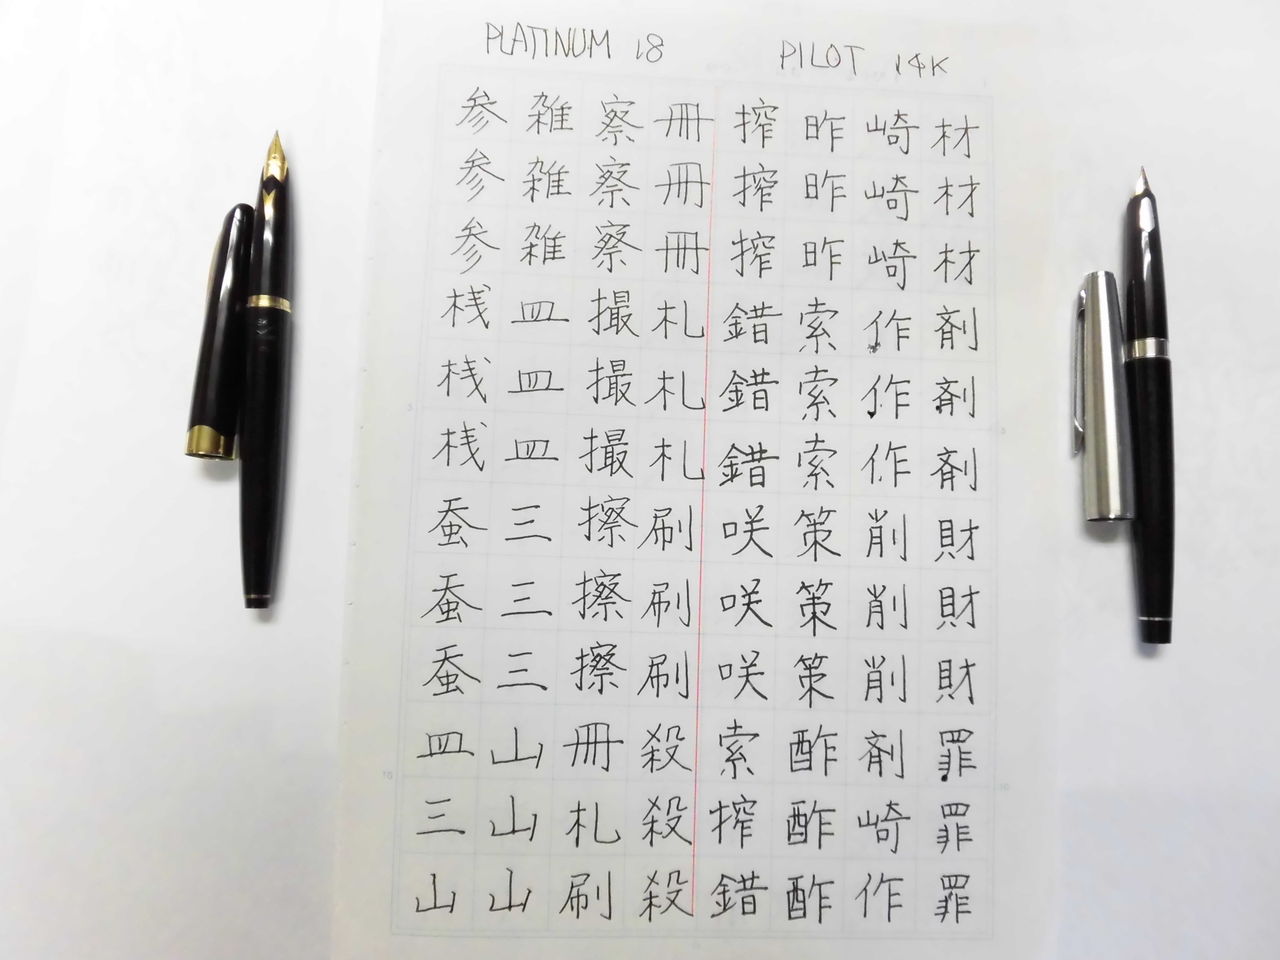 PLATINUM 18
PILOT 14K
材材材剤剤剤財財財罪罪罪
崎崎崎作作作削削削剤崎作
昨昨昨索索索策策策酢酢酢
搾搾搾錯錯錯咲咲咲索搾錯
冊冊冊札札札刷刷刷殺殺殺
察察察撮撮撮擦擦擦冊札刷
雑雑雑皿皿皿三三三山山山
参参参桟桟桟蚕蚕蚕皿三山